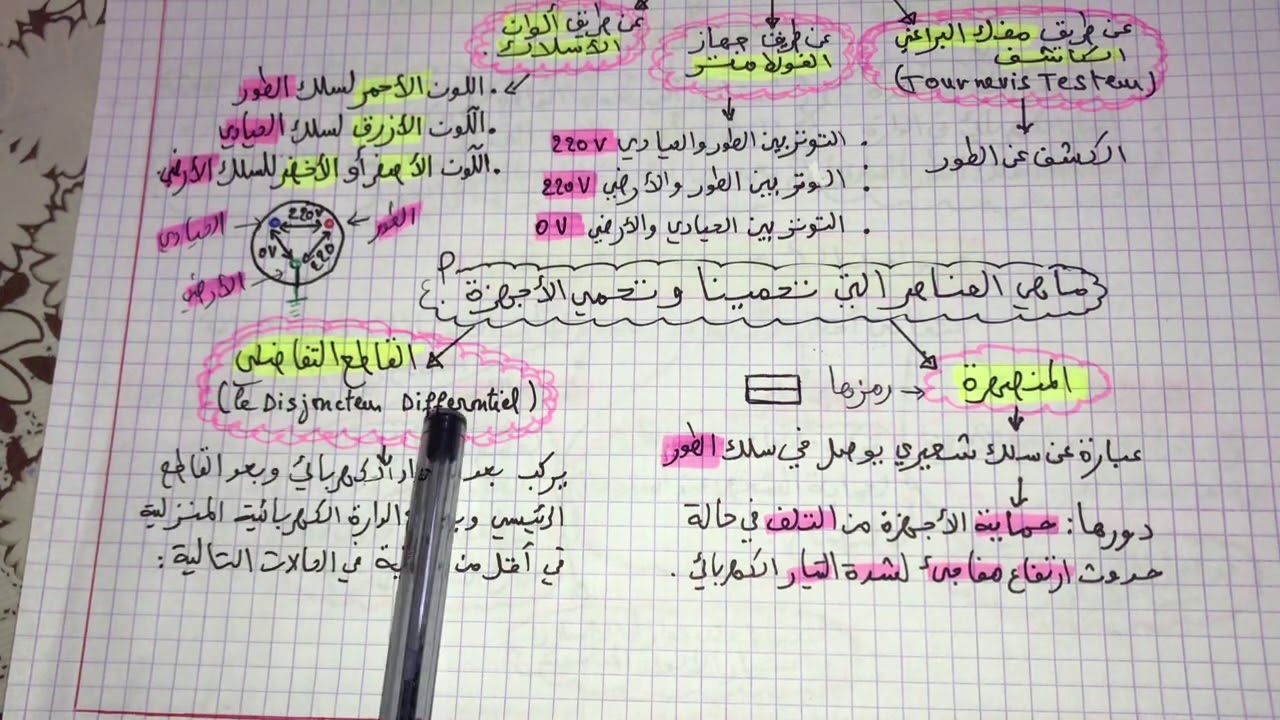 عن طريق مفك البراغي
الكاشف
(Tournevis Testeur)
الكشف عن الطور
عن طريق جهاز
الفولط متر
. التوتر بين الطور والحيادي 220V
. التوتر بين الطور والأرضي 220V
. التوتر بين الحيادي والأرضي 0V
عن طريق ألوان
الأسلاك.
. اللون الأحمر لسلك الطور
. اللون الأزرق لسلك الحيادي
. اللون الأصفر أو الأخضر للسلك الأرضي.
الطور
الحيادي
الأرضي
220V
0V
220
ماهي العناصر التي تحمينا وتحمي الأجهزة ؟
المنصهرة
رمزها
عبارة عن سلك شعيري يوصل في سلك الطور
دورها: حماية الأجهزة من التلف في حالة
حدوث ارتفاع مفاجئ لشدة التيار الكهربائي.
القاطع التفاضلي
(Le Disjoncteur Differentiel)
يركب بعد الكهربائي وبعد القاطع
الرئيسي الدارة الكهربائية المنزلية
في أقل من في الحالات التالية: